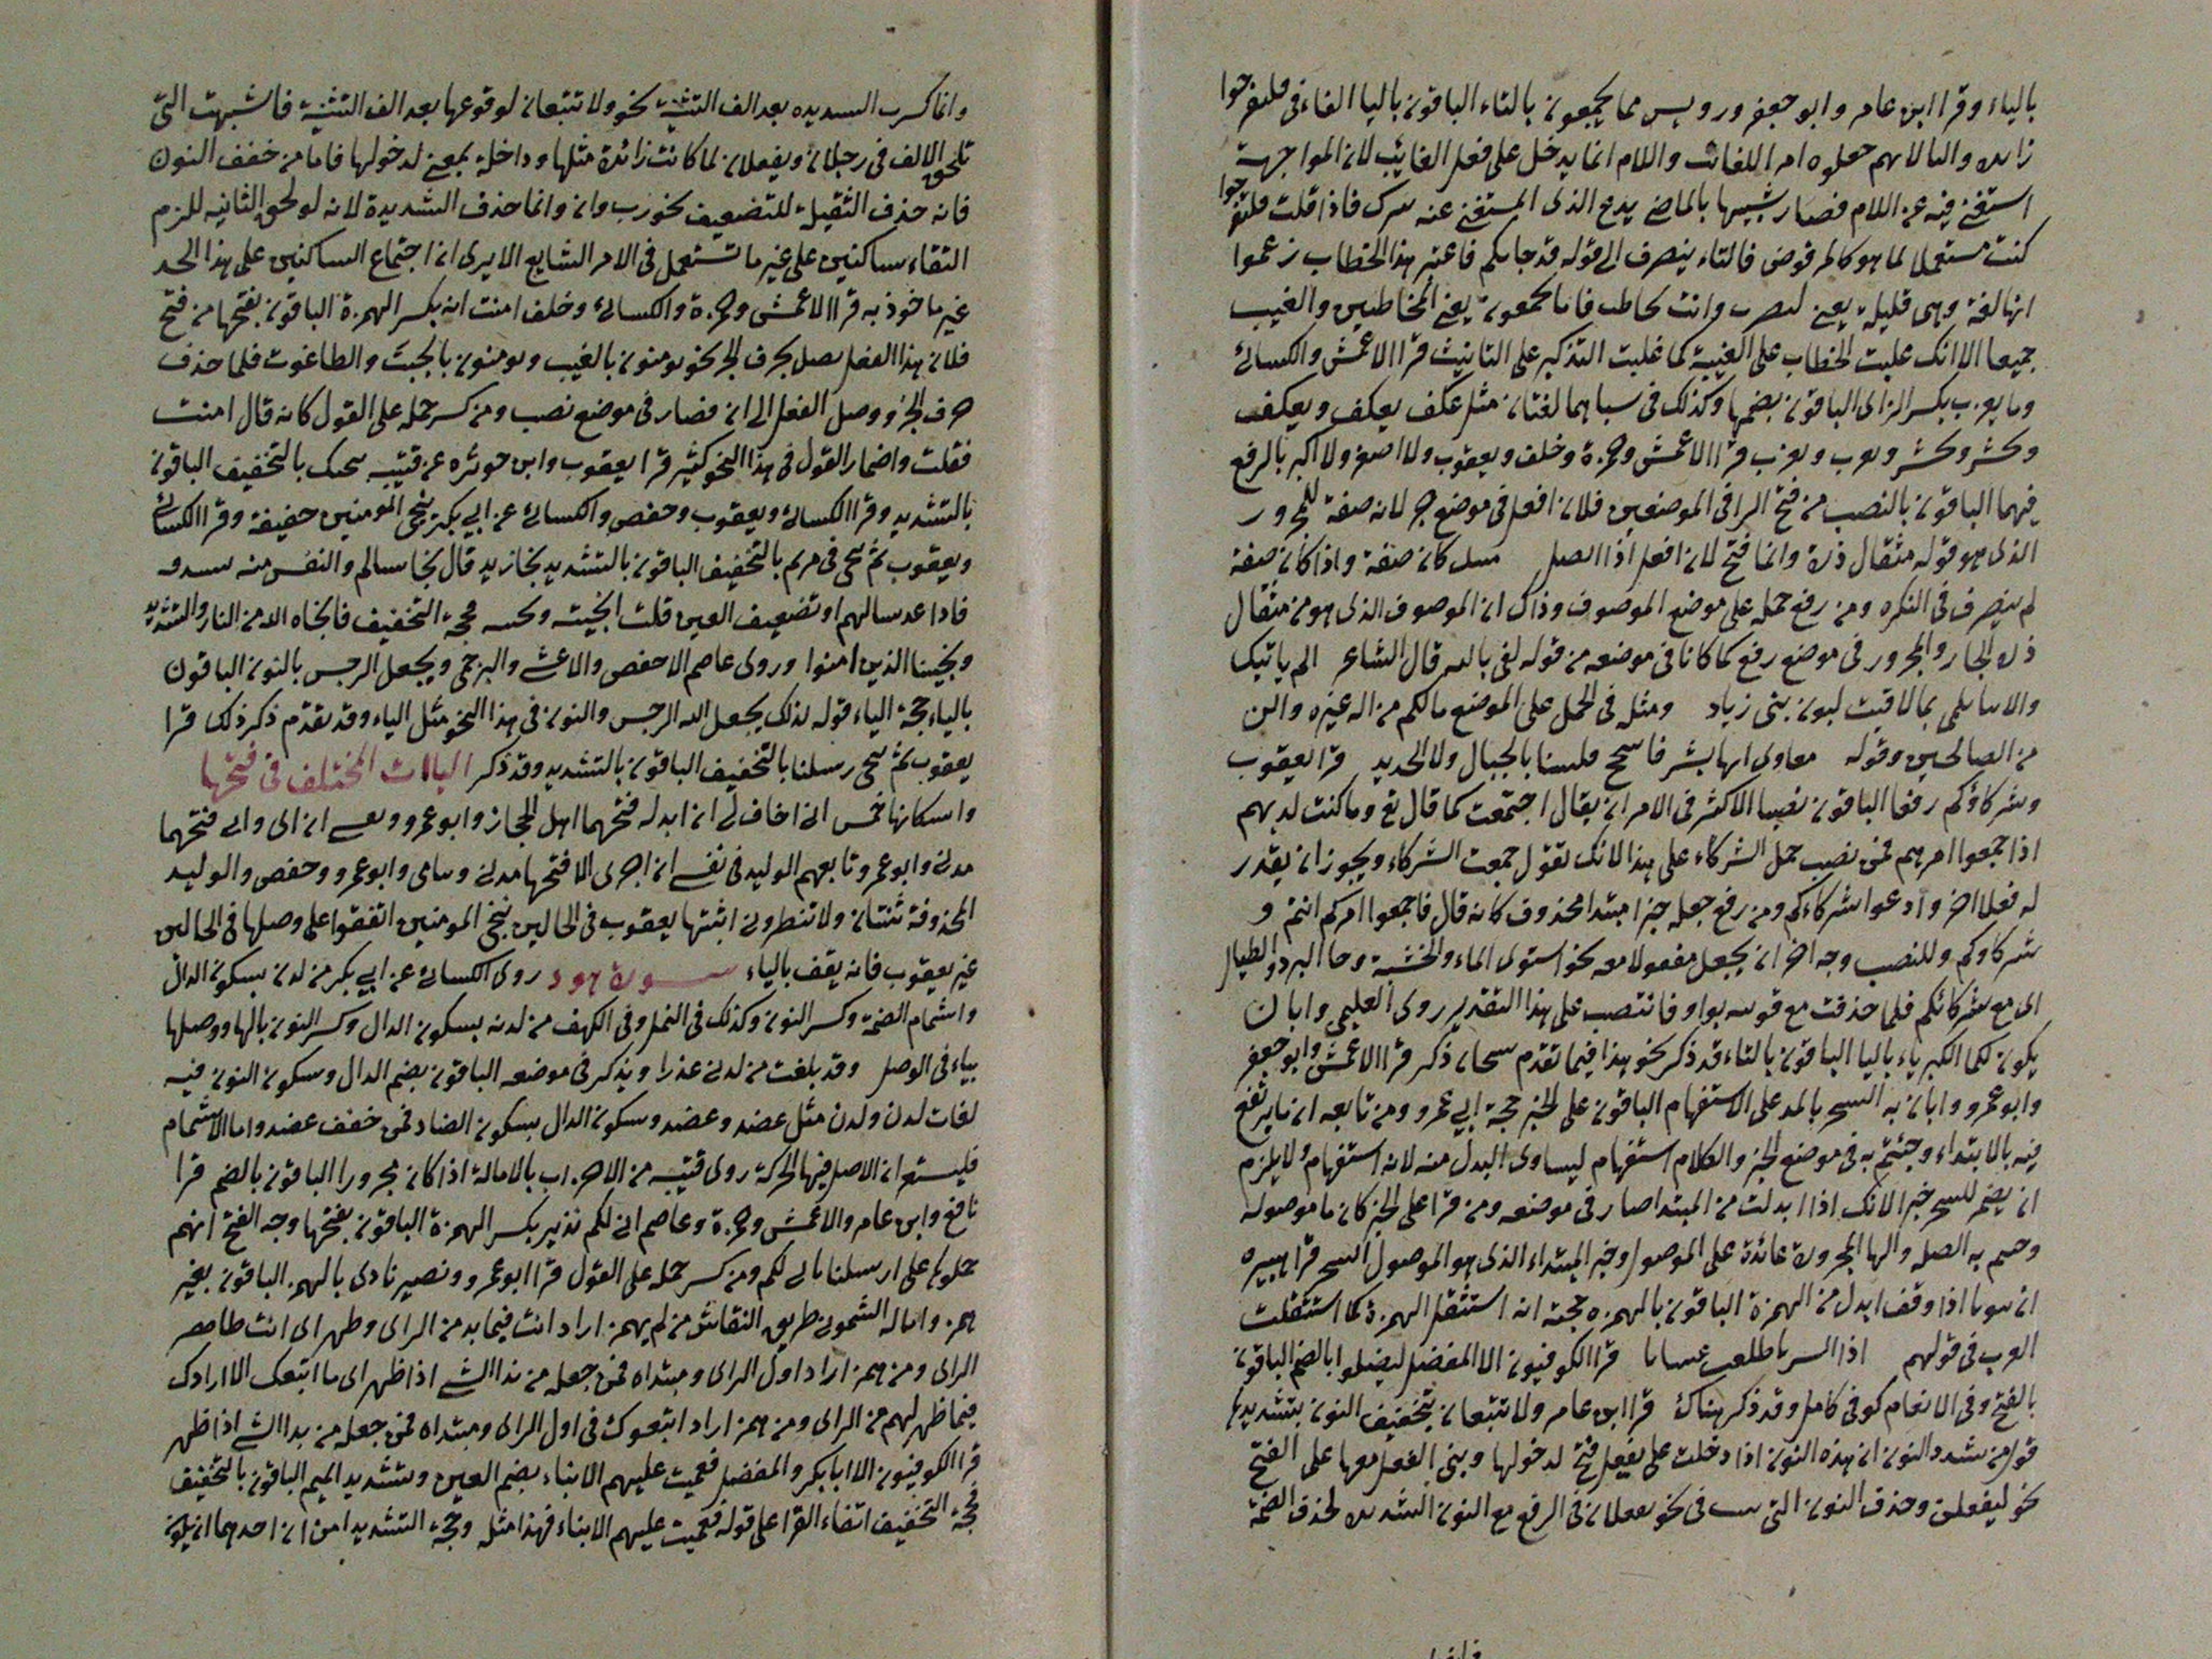 بالياء وقرا ابن عامر وابو جعفر ورويس مما يجمعون بالتاء الباقون باليا الفاء فى فليفرحوا
زايده واللام جعلوه امر للغائب واللام انما يدخل على فعل الغائب لان المواجهة
استغنى فيه عن اللام فصار شبيها بالماضى يدع الذى استغنى عنه بترك فاذا قلت فلتفرحوا
كنت مستعملا لما هو كالمرفوض فالتاء ينصرف الى قوله قد جاءكم فاعتبر هذا الخطاب زعموا
انها لغة وهى قليلة يعنى لتضرب وانت تخاطب فاما تجمعون يعنى المخاطبين والغيب
جميعا الا انك غلبت الخطاب على الغيبة كما غلبت التذكير على التانيث قرا الاعمش والكسائى
وما يعزب بكسر الزاى الباقون بضمها وكذلك فى سبا هما لغتان مثل عكف يعكف ويعكف
وحشر يحشر ويحشر ويعزب ويعزب قرا الاعمش وحمزة وخلف ويعقوب ولا اصغر ولا اكبر بالرفع
فيهما الباقون بالنصب من فتح الرا فى الموضعين فلان افعل فى موضع جر لانه صفة للمجرور
الذى هو قوله مثقال ذرة وانما فتح لان افعل اذا اتصل كان صفة واذا كان صفة
لم ينصرف فى النكره ومن رفع حمله على موضع الموصوف وذاك ان الموصوف الذى هو من مثقال
ذره الجار والمجرور فى موضع رفع كما كانا فى موضعه من قوله كفى بالله قال الشاعر الم ياتيك
والانبا تنمى بما لاقت لبون بنى زياد ومثله فى الحمل على الموضع مالكم من اله غيره واكن
من الصالحين وقوله معاوى اننا بشر فاسجح فلسنا بالجبال ولا الحديد قرا يعقوب
وشركاؤكم رفعا الباقون نصبا الاكثر فى الامر ان يقال اجتمعت كما قال تع وما كنت لديهم
اذ اجمعوا امرهم فمن نصب حمل الشركاء على هذا لانك تقول جمعت الشركاء ويجوز ان يقدر
له فعلا اخر وادعوا شركاءكم ومن رفع جعله خبرا مبتدا محذوف كانه قال فاجمعوا امركم انتم و
شركاوكم وللنصب وجه اخر ان يجعل مفعولا معه نحو استوى الماء والخشبة وجا البرد والطيالس
اى مع شركائكم فلما حذفت مع بواو فانتصب على هذا التقدير روى العليمى وابان
يكون لكما الكبرياء باليا الباقون بالتاء قد ذكر نحو هذا فيما تقدم سحار ذكر قرا الاعمش وابو جعفر
وابو عمرو وابان به السحر بالمد على الاستفهام الباقون على الخبر حجة ابى عمرو ومن تابعه ان ما يرتفع
فيه بالابتداء وجئتم به فى موضع الخبر والكلام استفهام ليساوى البدل منه لانه استفهام ولا يلزم
ان يضمر للسحر خبرا لانك اذا ابدلت من المبتدا صار فى موضعه ومن قرا على الخبر كان ما موصوله
وجئتم به الصلة والها المجرورة عائدة على الموصول وخبر المبتداء الذى هو الموصول السحر قرا هبيره
ان تبويا اذا وقف ابدل من الهمزة الباقون بالهمزه حجته انه استثقل الهمزة كما استثقلت
العرب فى قولهم اذا قرا الكوفيون الا المفضل ليضلوا بالضم الباقون
بالفتح وفى الانعام كوفى كامل وقد ذكر هناك قرا ابن عامر ولا تتبعان بتخفيف النون بتشديدها
قول من شدد النون ان هذه النون اذا دخلت على يفعل فتح لدخولها وبنى الفعل معها على الفتح
نحو ليفعلن وحذف النون التى فى نحو يفعلان فى الرفع مع النون الشديدة كحذف الضمة
وانما كسرت الشديده بعد الف التثنية نحو ولا تتبعان لوقوعها بعد الف التثنية فاشبهت التى
تلحق الالف فى رجلان ويفعلان لما كانت زائدة مثلها وداخلة بمعنى لدخولها فاما من خفف النون
فانه حذف الثقيلة للتضعيف نحو رب وان وانما حذف الشديدة لانه لو لحق الثانيه للزم
التقاء ساكنين على غير ما تستعمل فى الامر الشايع الا يرى ان اجتماع الساكنين على هذا الحد
غير ماخوذ به قرا الاعمش وحمزة والكسائى وخلف امنت انه بكسر الهمزة الباقون بفتحها من فتح
فلان هذا الفعل يصل بحرف الجر نحو يومنون بالغيب ويومنون بالجبت والطاغوت فلما حذف
حرف الجر ووصل الفعل الى ان فصار فى موضع نصب ومن كسر حمله على القول كانه قال امنت
فقلت واضمار القول فى هذا النحو كثير قرا يعقوب وابن حوثره عن قتيبه ننجيك بالتخفيف الباقون
بالتشديد وقرا الكسائى ويعقوب وحفص والكسائى عن ابى بكر ننجى المومنين خفيفة وقرا الكسائى
ويعقوب ثم ننجى فى مريم بالتخفيف الباقون بالتشديد نجا زيد قال نجا سالم والنفس منه بشدقه
فاذا عديته او تضعيف العين قلت انجيته ونجيته حجة التخفيف فانجاه الله من النار والتشديد
ونجينا الذين امنوا وروى عاصم الا حفص والاعشى والبرجمى ويجعل الرجس بالنون الباقون
بالياء حجة الياء قوله كذلك يجعل الله الرجس والنون فى هذا النحو مثل الياء وقد تقدم ذكر ذلك قرا
يعقوب ثم ننجى رسلنا بالتخفيف الباقون بالتشديد وقد ذكر الياات المختلف فى فتحها
واسكانها خمس انى اخاف لى ان ابدله فتحهما اهل الحجاز وابو عمرو ونفسى ان اى وربى فتحهما
مدنى وابو عمرو تابعهم الوليد فى نفسى ان اجرى الا فتحها مدنى وشامى وابو عمرو وحفص والوليد
المحذوفة ثنتان ولا تنظرونى اثبتها يعقوب فى الحالين ننجى المومنين اتفقوا على وصلها فى الحالين
غير يعقوب فانه يقف بالياء سورة هود روى الكسائى عن ابى بكر من لدن بسكون الدال
واشمام الضمة وكسر النون وكذلك فى النمل وفى الكهف من لدنه بسكون الدال وكسر النون بالها ووصلها
بياء فى الوصل وقد بلغت من لدنى عذرا ويذكر فى موضعه الباقون بضم الدال وسكون النون فيه
لغات لدن ولدن مثل عضد وعضد وسكون الدال بسكون الضاد فمن خفف عضد واما الاشمام
فليشعر ان الاصل فيها الحركة روى قتيبه من الاحزاب بالامالة اذا كان مجرورا الباقون بالضم قرا
نافع وابن عامر والاعمش وحمزة وعاصم انى لكم نذير بكسر الهمزة الباقون بفتحها وجه الفتح انهم
حملوها على ارسلنا بانى لكم ومن كسر حمله على القول قرا ابو عمرو ونصير بادى بالهمز الباقون بغير
همز واماله الشمونى طريق النقاش من لم يهمز اراد انت فيما بدا من الراى وظهر اى انت ظاهر
الراى ومن همز اراد اول الراى ومبتداه فمن جعله من بدا الشى اذا ظهر اى ما اتبعك الا اراذل
فيما ظهر لهم من الراى ومن همز اراد اتبعوك فى اول الراى ومبتداه فمن جعله من بدا الشى اذا ظهر
قرا الكوفيون الا ابا بكر والمفضل فعميت عليهم الانباء بضم العين وتشديد الميم الباقون بالتخفيف
حجة التخفيف اتفاء القرا على قوله فعميت عليهم الانباء فهذا مثله وحجة التشديد امن ان احدهما ان يكون